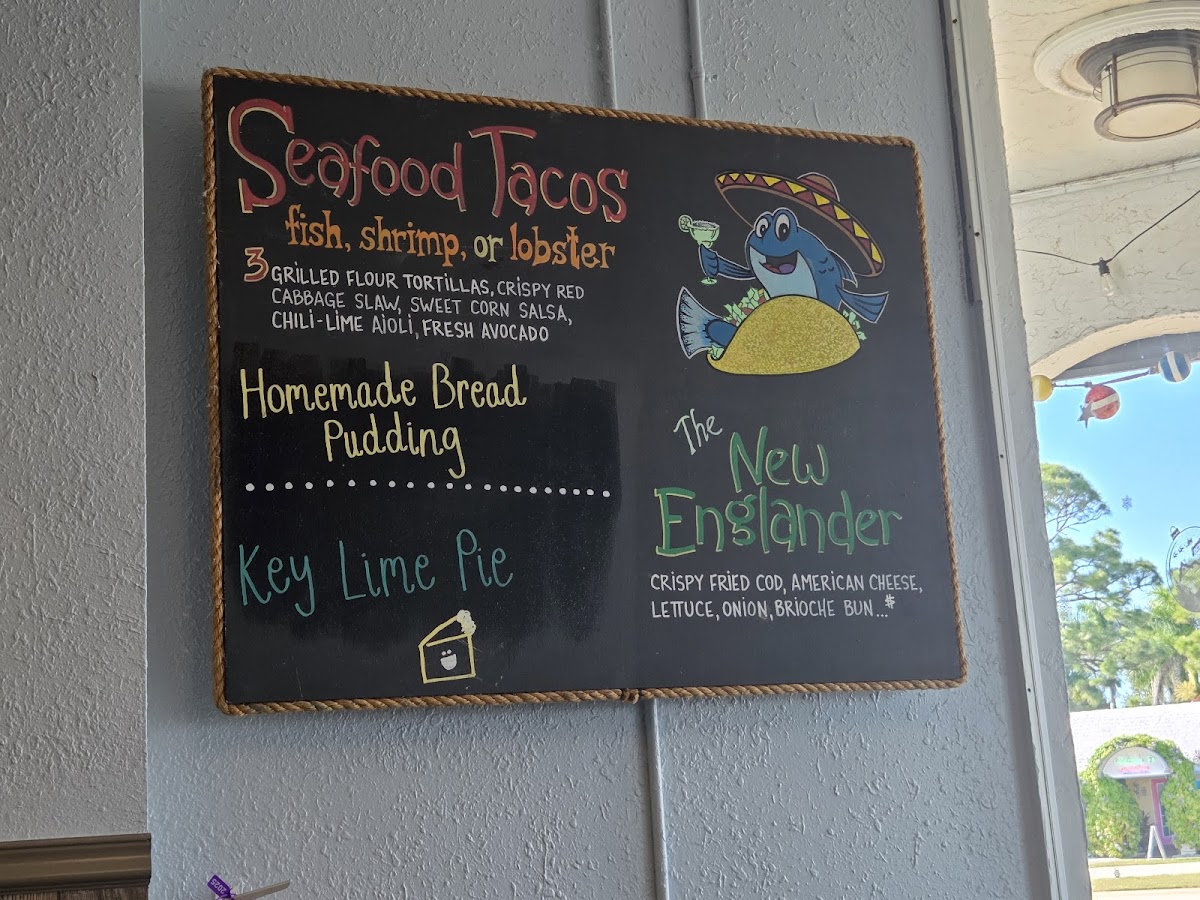 Seafood Tacos
fish, shrimp, or lobster
3 GRILLED FLOUR TORTILLAS, CRISPY RED
CABBAGE SLAW, SWEET CORN SALSA,
CHILI-LIME AIOLI, FRESH AVOCADO
Homemade Bread
Pudding
Key Lime Pie
The
New
Englander
CRISPY FRIED COD, AMERICAN CHEESE,
LETTUCE, ONION, BRIOCHE BUN...$
2025